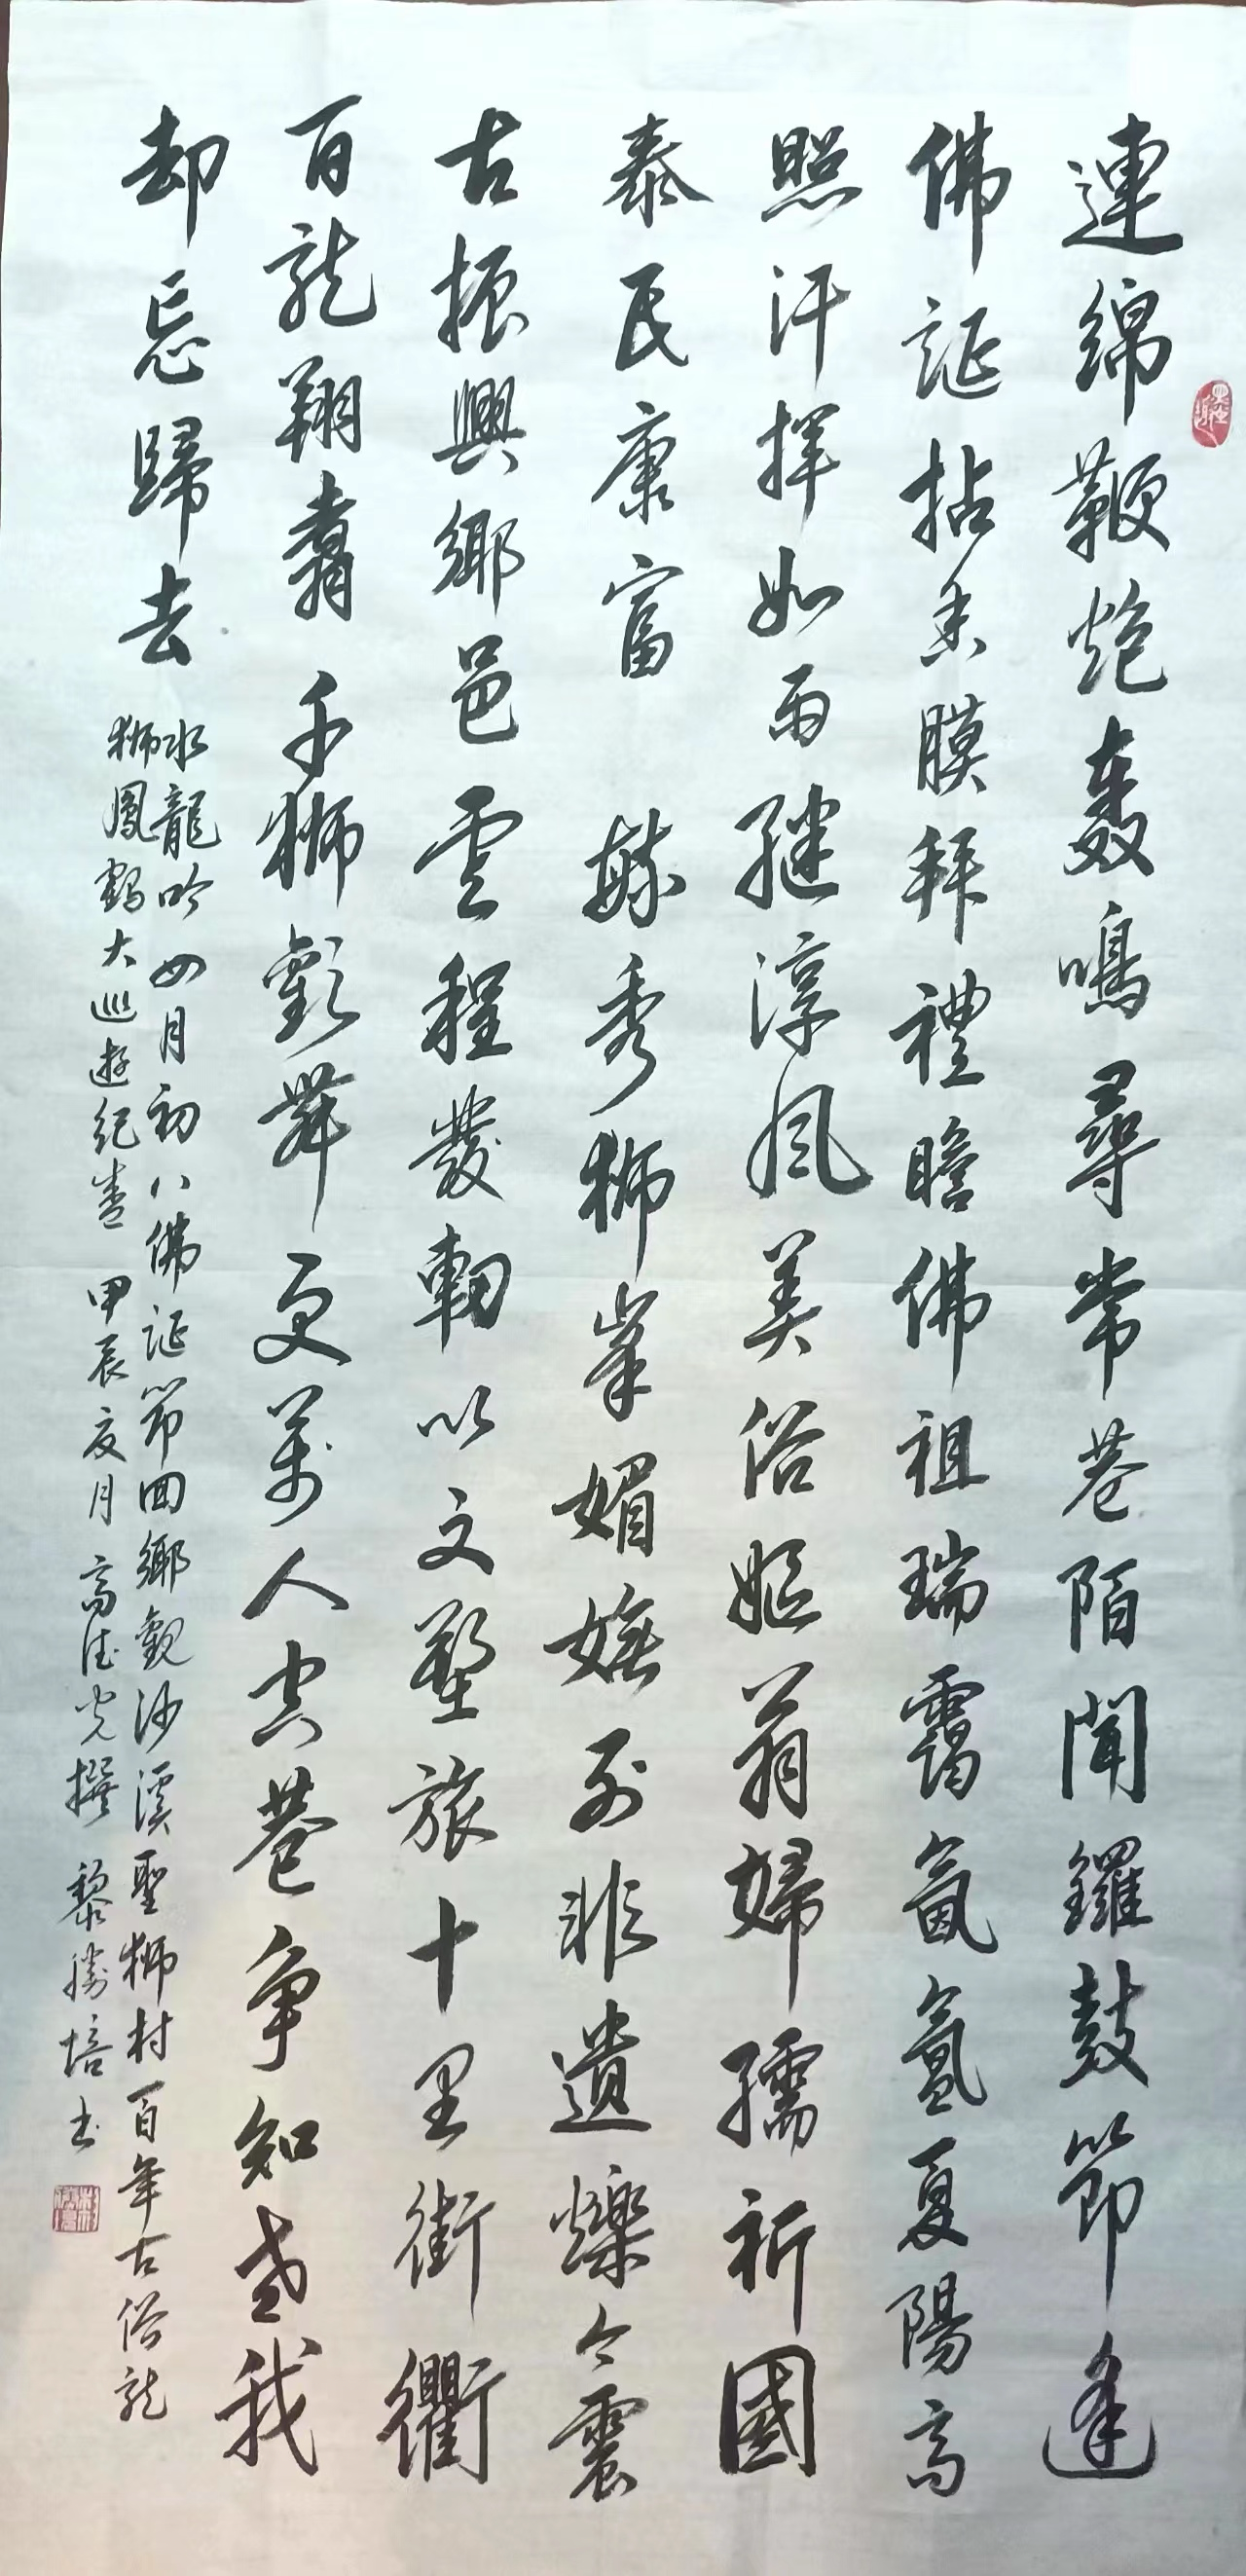 連綿鞭炮轟鳴尋常巷陌聞鑼鼓節逢
佛誕拈香膜拜禮瞻佛祖瑞靄氤氳夏陽高
照汗揮如雨繼淳風美俗嫗翁婦孺祈國
泰民康富 毓秀獅峯媚嫵列非遺爍今震
古振興鄉邑雲程發軔以文塑旅十里街衢
百龍翔翥千獅歡舞更萬人空巷爭知老我
却忘歸去
水龍吟 四月初八佛誕節回鄉觀沙溪聖獅村百年古俗龍
獅鳳鶴大巡遊紀盛 甲辰夏月 高法光撰 黎勝培书